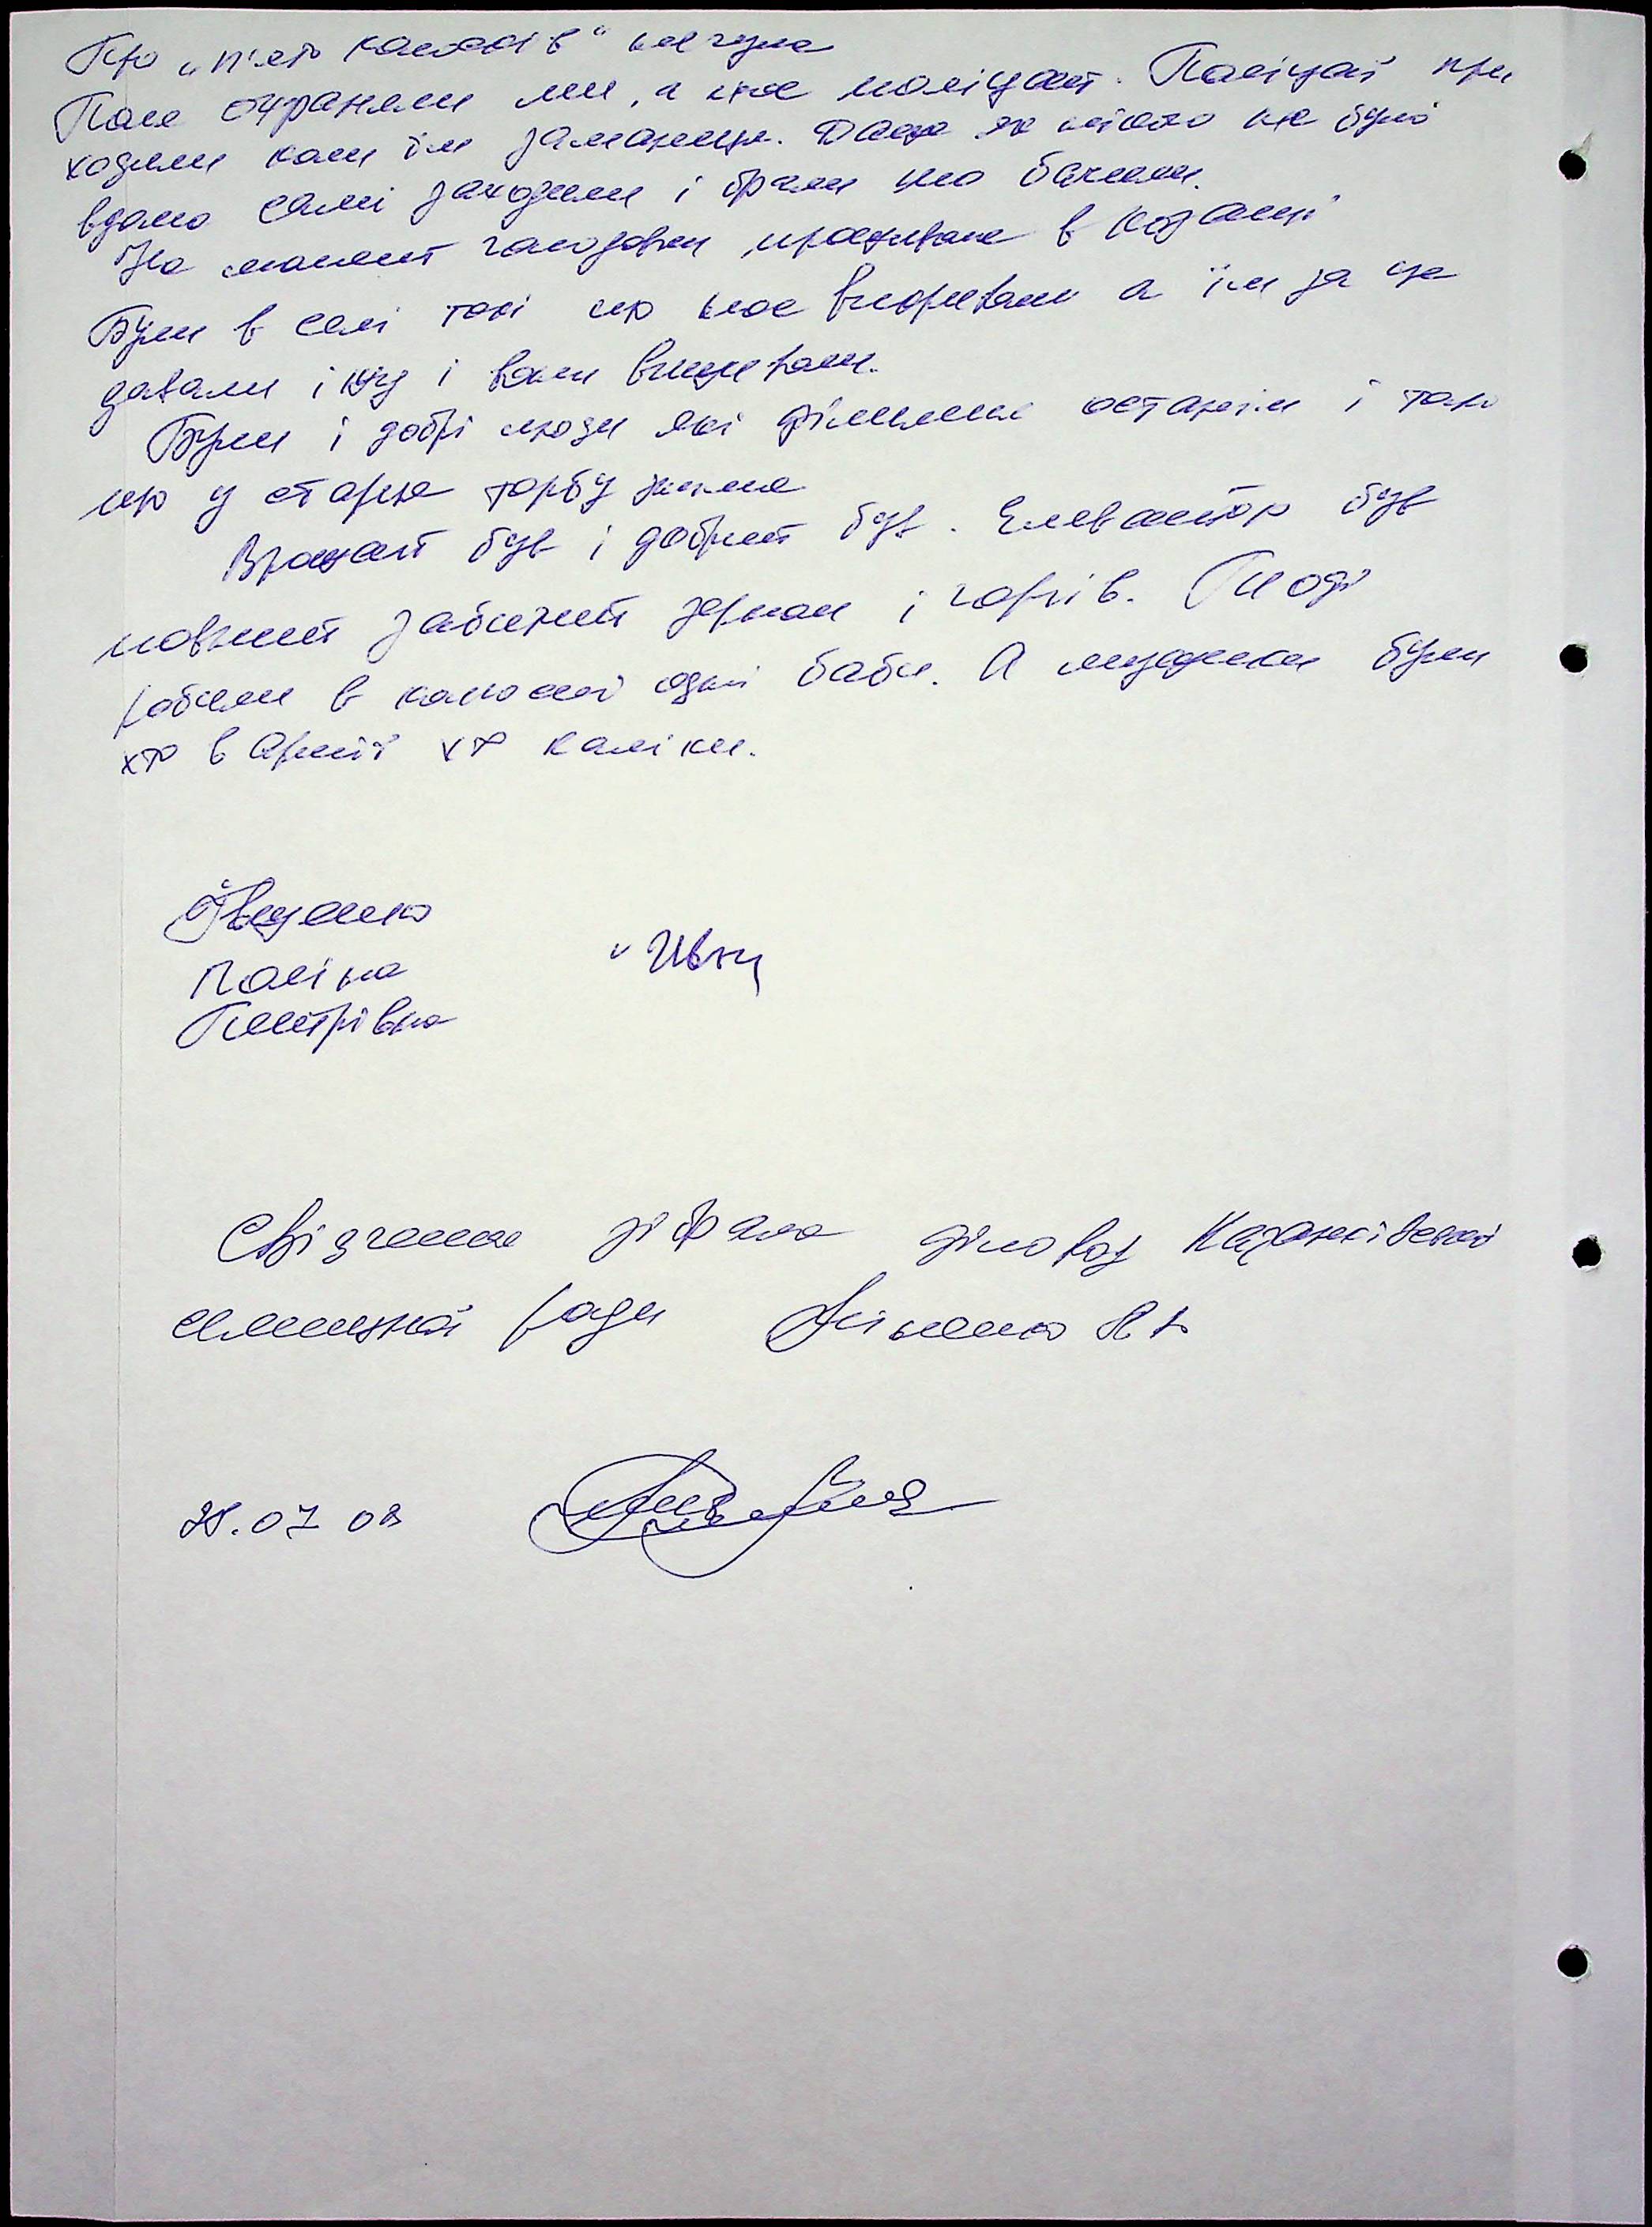 Про „п'ять колосків" не чула
Поле охраняли ми, а не поліцаї. Поліцаї при
ходили коли їм заманеця. Даже як нікого не було
вдома самі заходили і брали що бачили.
На момент голодовки проживала в Козанці
Були в селі такі що нас видавали а їм за це
давали їжу і вони виживали.
Були і добрі люди які ділилися останнім і тим
що у старця торбу
Врожай був і добрий був. Елеватор був
повний забитий зерном і горів. Тоді
робили в колгоспі одні баби. А мужики були
хто в Армії хто каліки.
Іващенко
Поліна
Дмитрівна
Ивщ
Свідчення зібрала діловод Казанківської
селищної ради